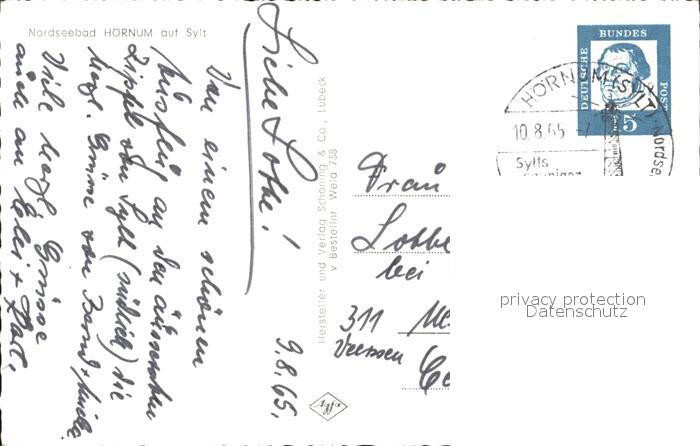 Nordseebad HÖRNUM auf Sylt
Liebe Lotte!
Von einem schönen
Ausflug an den äussersten
Zipfel von Sylt (südlich) die
herzl. Grüsse von Bernd +
Viele herzl. Grüsse
auch an
9.8.65.
Hersteller und Verlag Schöning & Co., Lübeck
v Bestellnr. Wela 738
Frau
Lotte
bei
311
DEUTSCHE
BUNDES
POST
15
HÖRNUM (SYLT)
Nordse
10.8.65
Sylts
privacy protection
Datenschutz